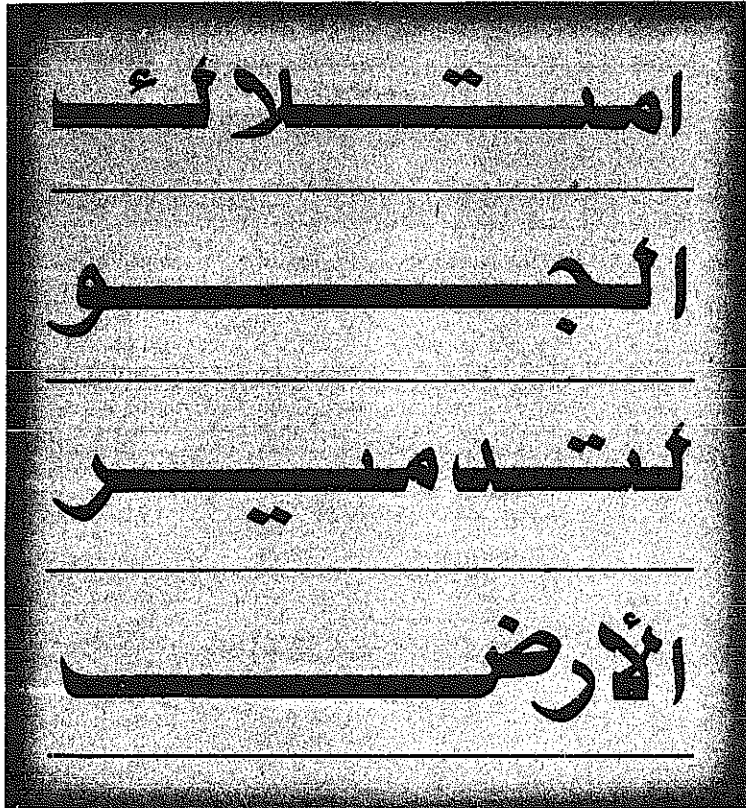 امتلاك
الجو
لتدمير
الأرض